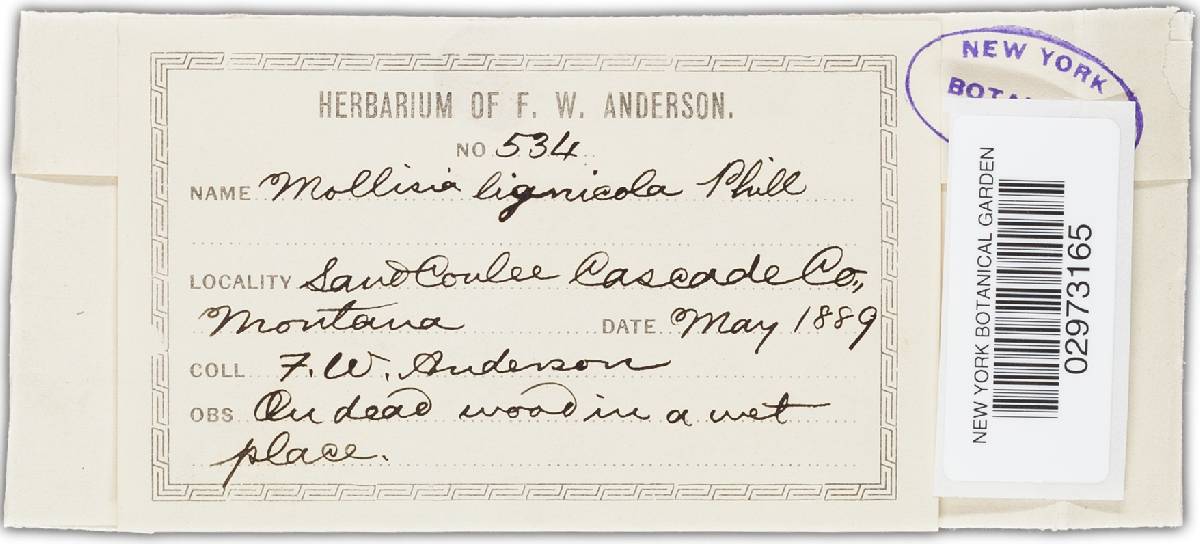 HERBARIUM OF F. W. ANDERSON.
NO 534
NAME Mollisia lignicola Phill
LOCALITY Sand Coulee Cascade Co.,
Montana DATE May 1889
COLL F. W. Anderson
OBS. On dead wood in a wet
place.
NEW YORK
NEW YORK BOTANICAL GARDEN
02973165